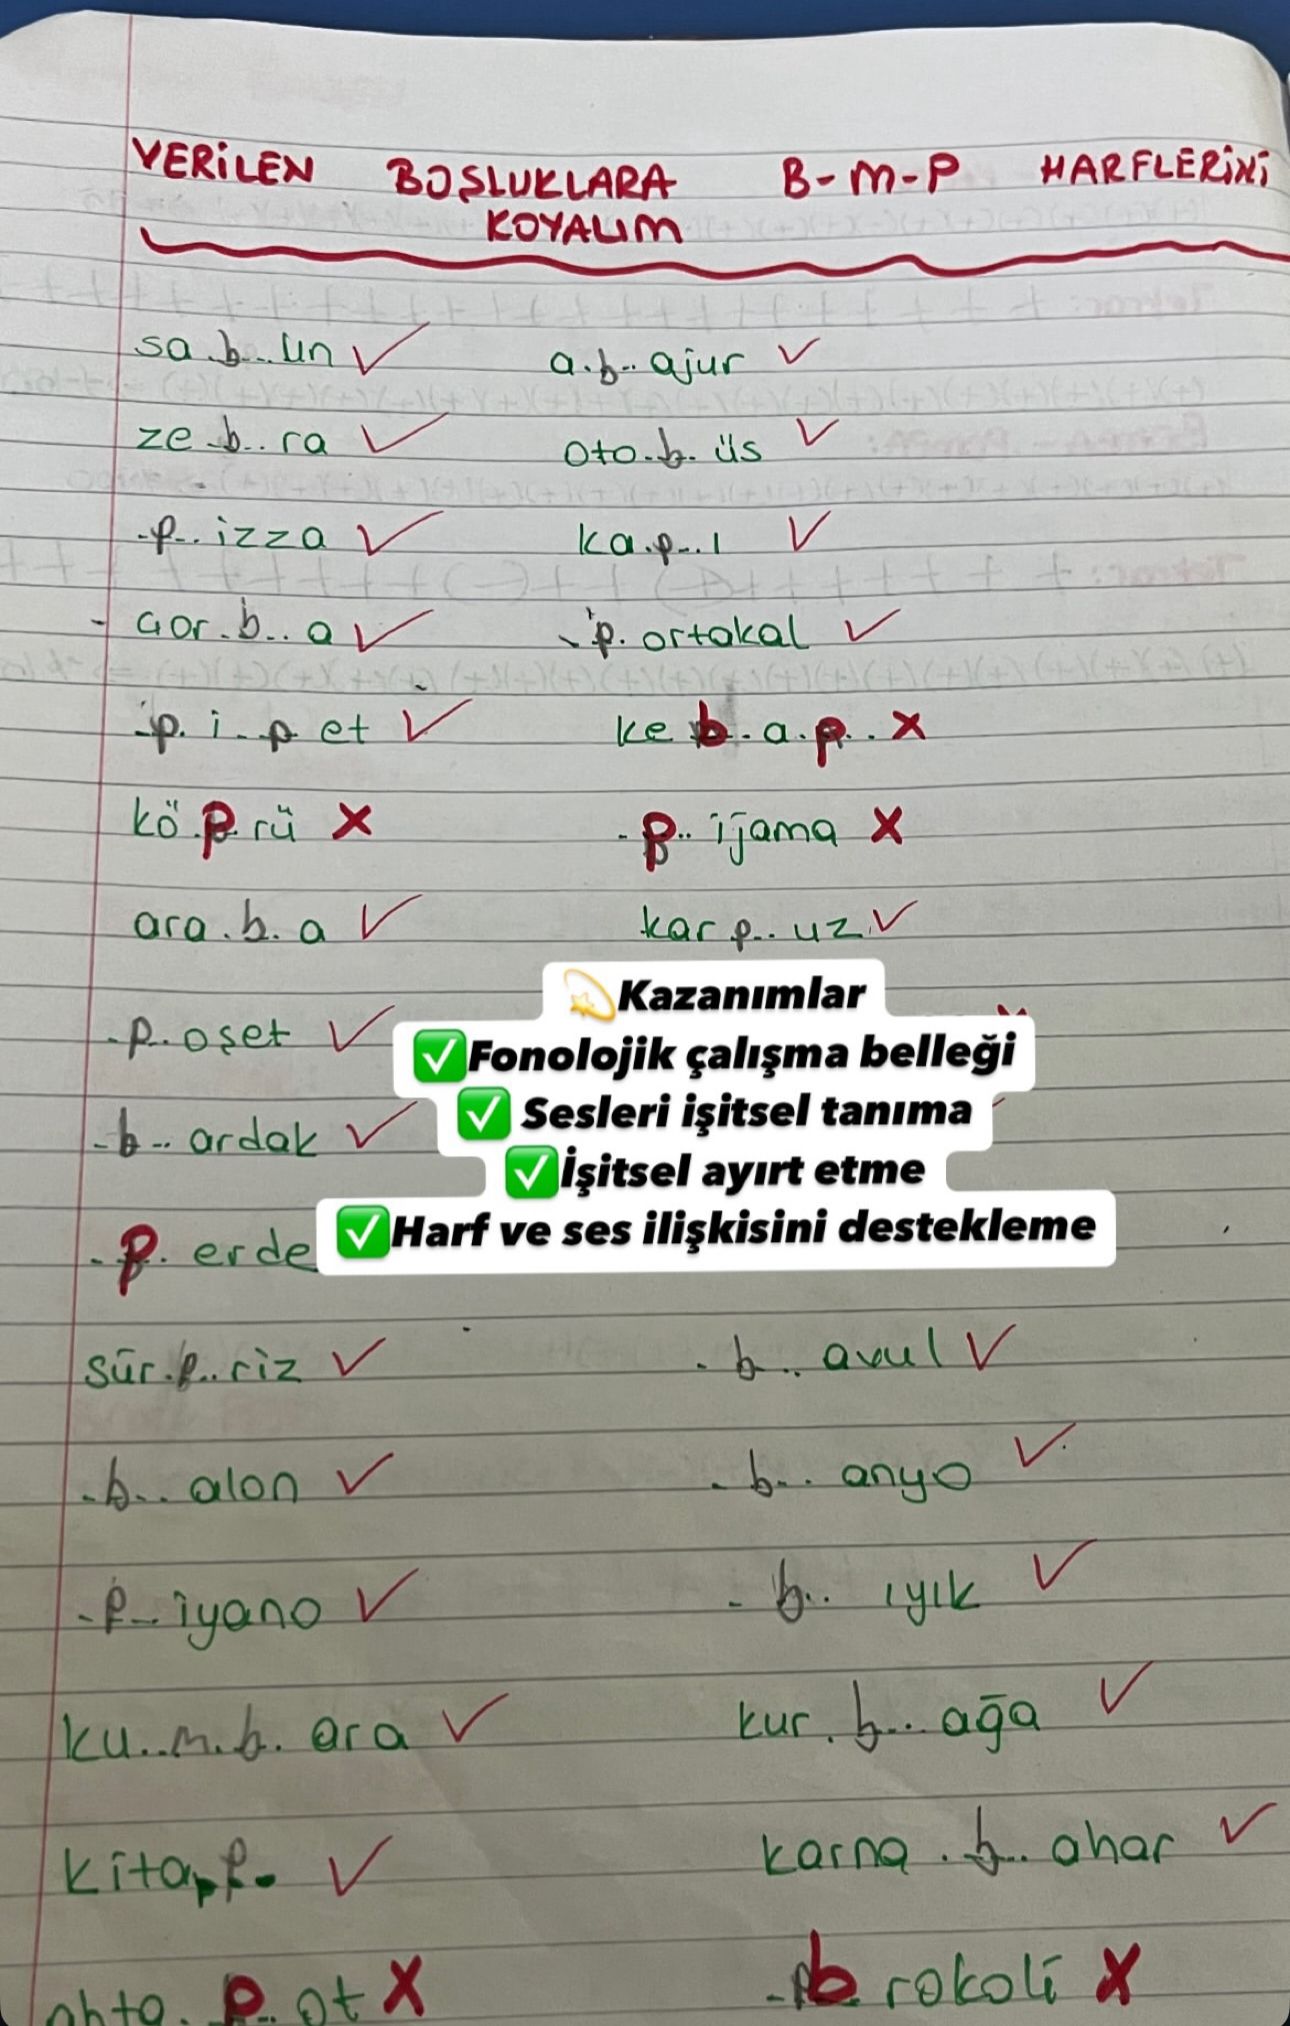 VERİLEN BOŞLUKLARA B-M-P HARFLERİNİ
KOYALIM
sa.b..un ✓ a.b..ajur ✓
ze.b..ra ✓ oto.b.üs ✓
.p..izza ✓ ka.p..ı ✓
çor.b..a ✓ .p.ortakal ✓
.p.i.p et ✓ ke b.a.p.. X
kö.p.rü X .p..ijama X
ara.b.a ✓ kar p..uz ✓
.p..oşet ✓
.b..ardak ✓
.p.erde
sür.p..riz ✓ .b..avul ✓
.b..alon ✓ .b..anyo ✓
.p..iyano ✓ .b..ıyık ✓
ku..m.b.ara ✓ kur.b..ağa ✓
kita.p. ✓ karna.b..ahar ✓
ahto.p.ot X .b rokoli X
💫Kazanımlar
✅Fonolojik çalışma belleği
✅ Sesleri işitsel tanıma
✅İşitsel ayırt etme
✅Harf ve ses ilişkisini destekleme